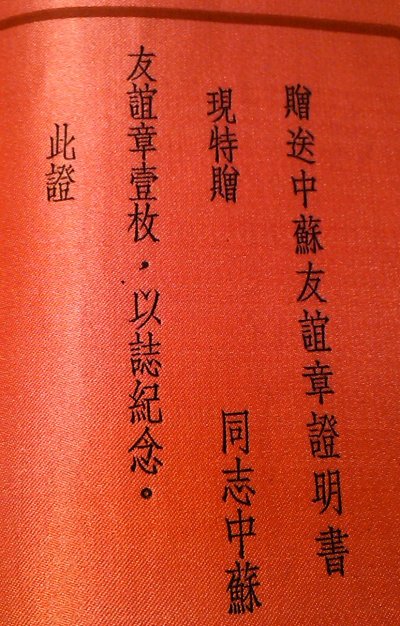 贈送中蘇友誼章證明書
現特贈　　　同志中蘇
友誼章壹枚，以誌紀念。
此證